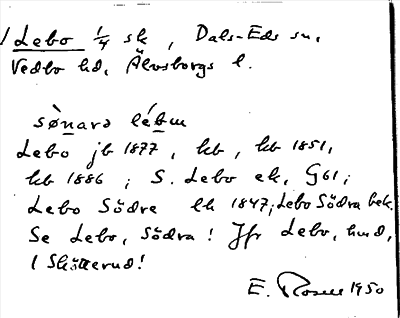 / Lebo 1/4 sk, Dals-Eds sn,
Vedbo hd, Älvsborgs l.
sø̀narə lébm
Lebo jb 1877, kb, hb 1851,
kb 1886; S. Lebo ek, G61;
Lebo Södre lk 1847; Lebo Södra bek.
Se Lebo, Södra! Jfr Lebo, hmd,
E. Rosell 1950